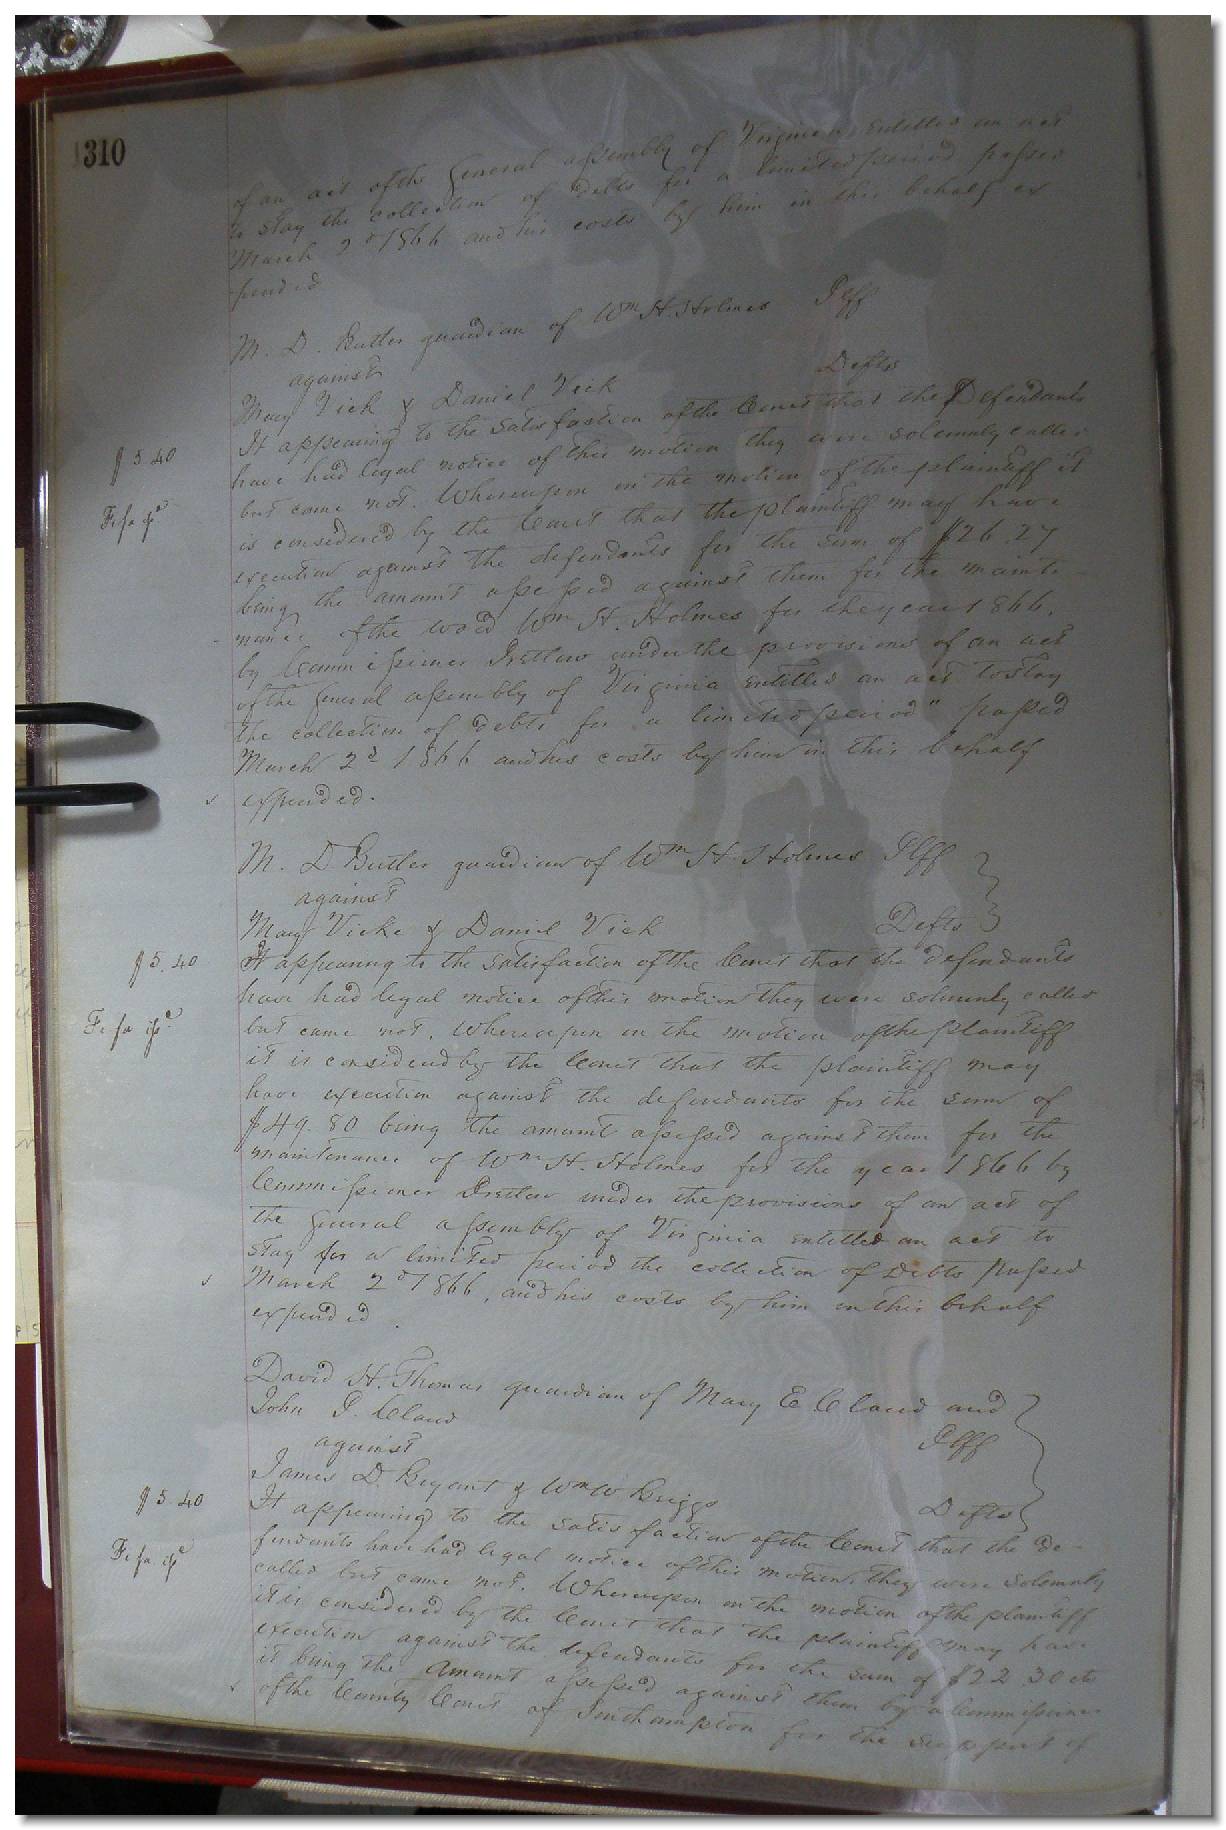 310
of an act of the General assembly of Virginia entitled an act
to stay the collection of debts for a limited period passed
March 2d 1866 and his costs by him in this behalf ex
pended
M. D. Butler guardian of Wm H. Holmes Plff
against
Mary Vick & Daniel Vick Defts
It appearing to the satisfaction of the Court that the Defendants
$5.40
have had legal notice of this motion they were solemnly called
but came not. Whereupon on the motion of the plaintiff it
Fi fa isd
is considered by the Court that the plaintiff may have
execution against the defendants for the sum of $26.27
being the amount assessed against them for the mainte
nance of the ward Wm H. Holmes for the year 1866.
by Commissioner Pretlow under the provisions of an act
of the General assembly of Virginia entitled an act to stay
the collection of debts for a limited period" passed
March 2d 1866 and his costs by him in this behalf
expended.
M. D Butler guardian of Wm H. Holmes Plff
against
Mary Vicke & Daniel Vick Defts
$5.40
It appearing to the satisfaction of the Court that the defendants
have had legal notice of this motion they were solemnly called
Fi fa isd
but came not. Whereupon on the motion of the plaintiff
it is considered by the Court that the plaintiff may
have execution against the defendants for the sum of
$49.80 being the amount assessed against them for the
maintenance of Wm H. Holmes for the year 1866 by
Commissioner Pretlow under the provisions of an act of
the general assembly of Virginia entitled an act to
stay for a limited period the collection of Debts passed
March 2d 1866, and his costs by him in this behalf
expended.
David H. Thomas guardian of Mary E Claud and
John P. Claud Plff
against
James D. Bryant & Wm W Briggs Defts
$5.40
It appearing to the satisfaction of the Court that the de-
fendants have had legal notice of this motion, they were solemnly
Fi fa isd
called but came not. Whereupon on the motion of the plaintiff
it is considered by the Court that the plaintiff may have
execution against the defendants for the sum of $22.30 cts
it being the Amount assessed against them by a Commissioner
of the County Court of Southampton for the support of